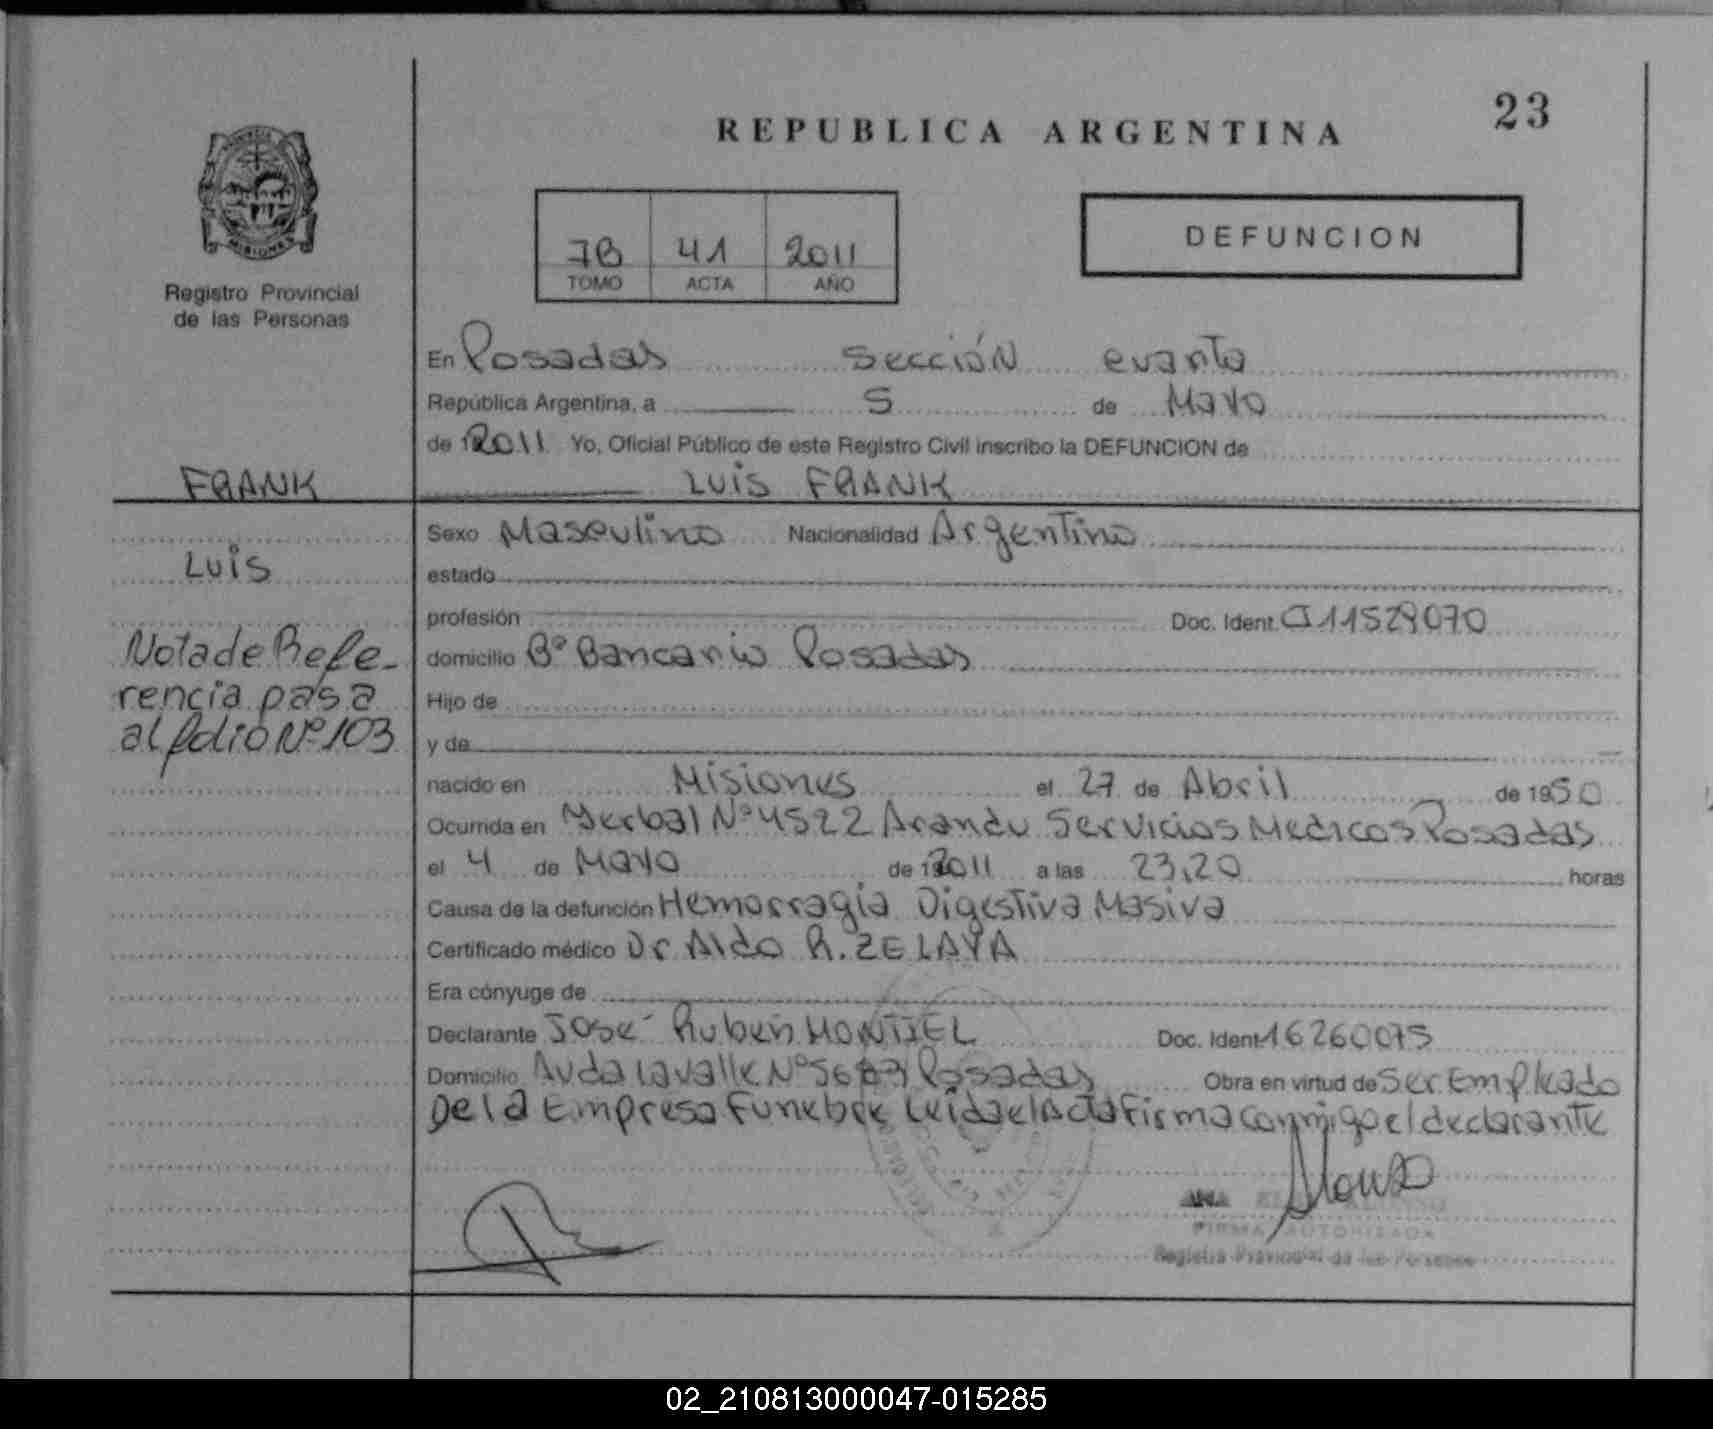 23
REPUBLICA ARGENTINA
DEFUNCION
7B 41 2011
TOMO ACTA AÑO
MISIONES
Registro Provincial
de las Personas
En Posadas Sección cuarta
República Argentina, a 5 de Mayo
de 2011 Yo, Oficial Público de este Registro Civil inscribo la DEFUNCION de
FRANK
LUIS FRANK
Luis
Sexo Masculino Nacionalidad Argentino
estado
profesión Doc. Ident. CI 11529070
Nota de Refe-
rencia pasa
al folio Nº 103
domicilio Bº Bancario Posadas
Hijo de
y de
nacido en Misiones el 27 de Abril de 1950
Ocurrida en Yerbal Nº 4522 Arandu Servicios Medicos Posadas
el 4 de Mayo de 2011 a las 23,20 horas
Causa de la defunción Hemorragia Digestiva Masiva
Certificado médico Dr Aldo R. ZELAYA
Era cónyuge de
Declarante José Ruben MONTIEL Doc. Ident 16260075
Domicilio Avda Lavalle Nº Posadas Obra en virtud de Ser Empleado
De la Empresa Funebre, Leida el Acta Firma conmigo el declarante
ANA
FIRMA AUTORIZADA
Registro Provincial de las Personas
02_210813000047-015285